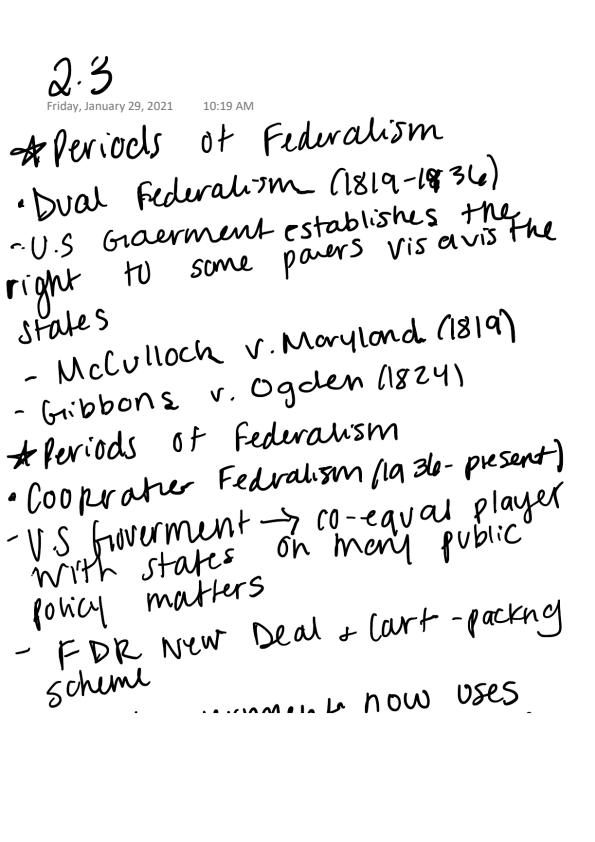 2.3
Friday, January 29, 2021 10:19 AM
★Periods of Federalism
• Dual Federalism (1819-1936)
- U.S Goverment establishes the
right to some powers vis avis the
states
- McCulloch v. Maryland (1819)
- Gibbons v. Ogden (1824)
★Periods of Federalism
• Cooprative Fedralism (1936- present)
- U.S Goverment → co-equal player
with states on many public
policy matters
- FDR New Deal + Cort -packng
scheme
now uses